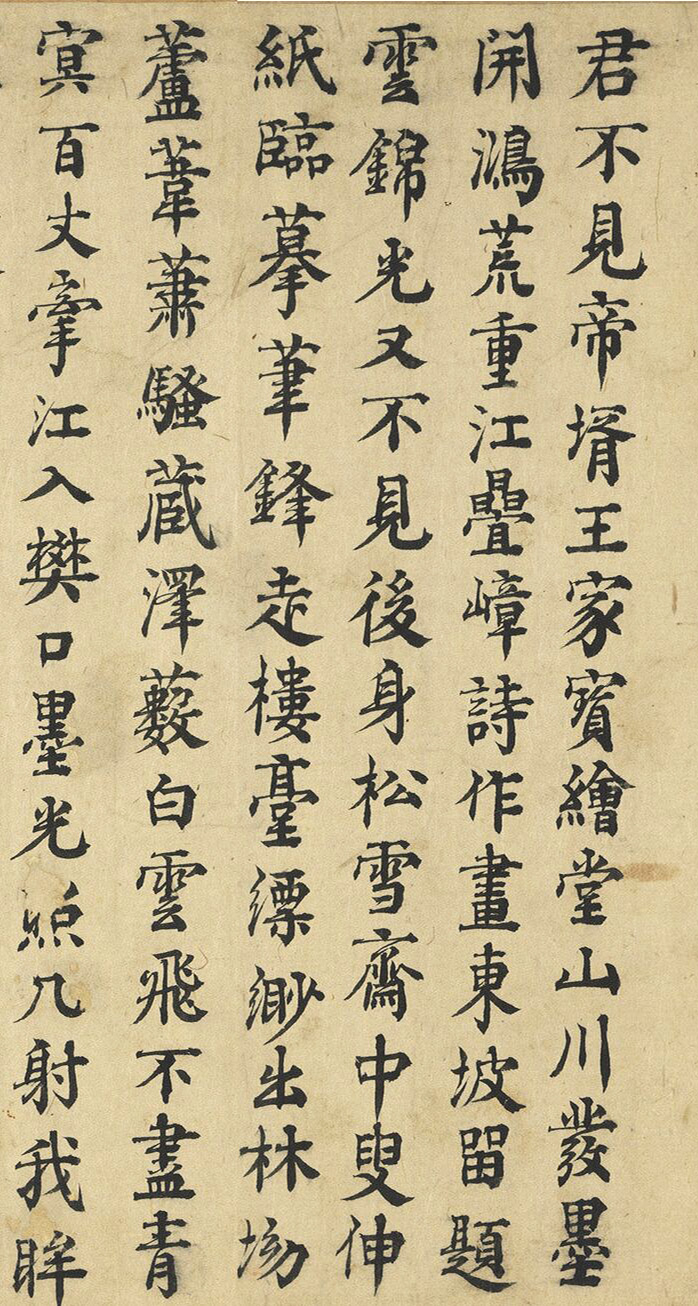 君不見帝壻王家寳繪堂山川發墨
開鴻荒重江疊嶂詩作畫東坡留題
雲錦光又不見後身松雪齋中叟伸
紙臨摹筆鋒走樓臺縹緲出林坳
蘆葦蕭騷藏澤藪白雲飛不盡青
冥百丈牽江入樊口墨光照几射我眸